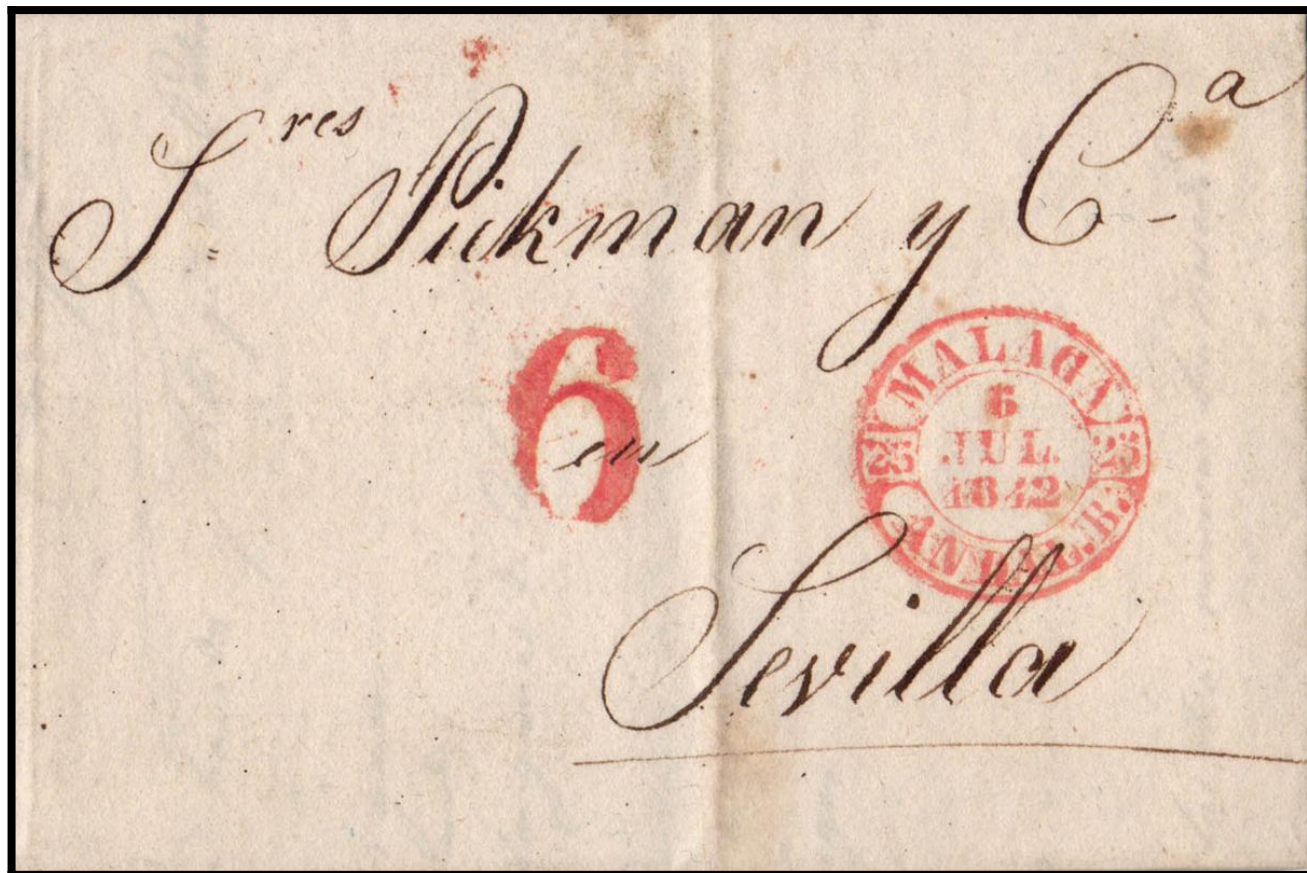 Sres Pickman y Ca
6
en
MALAGA
25 25
6
JUL.
1842
ANDAL. B.
Sevilla